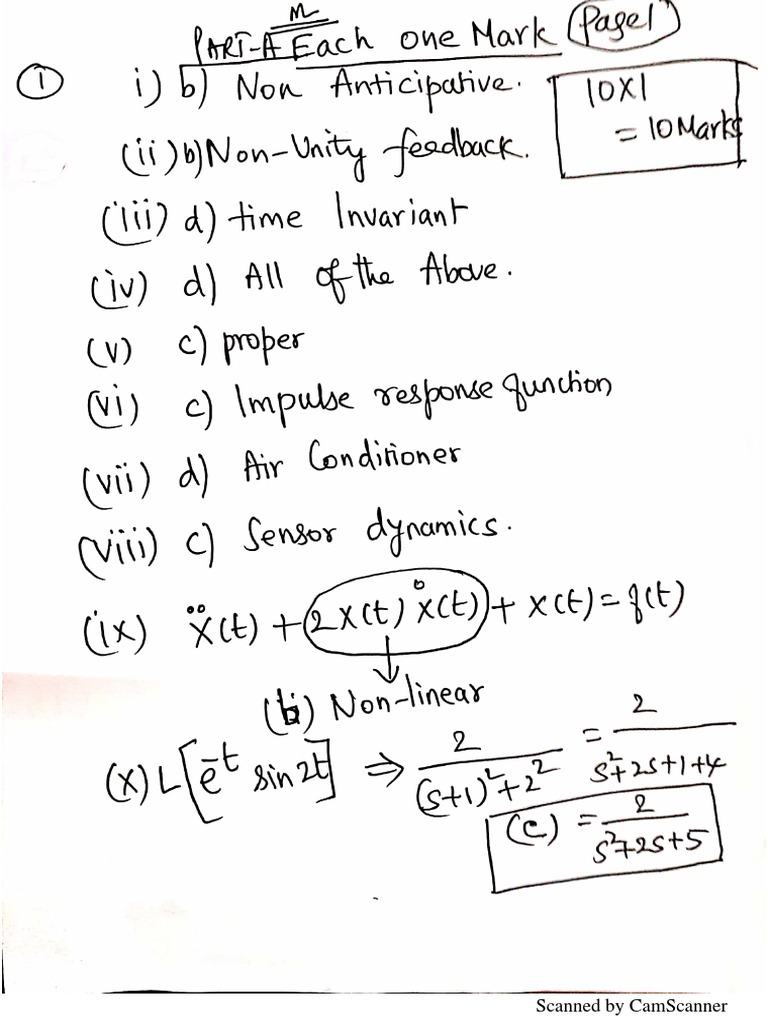 M
PART-A Each one Mark Page1
① i) b) Non Anticipative. 10X1
= 10 Marks
(ii) b) Non-Unity feedback.
(iii) d) time Invariant
(iv) d) All of the Above.
(v) c) proper
(vi) c) Impulse response function
(vii) d) Air Conditioner
(viii) c) Sensor dynamics.
(ix) ẍ(t) + 2x(t) ẋ(t) + x(t) = f(t)
(b) Non-linear
(x) L[e^-t sin 2t] ⇒ 2/((s+1)²+2²) = 2/(s²+2s+1+4)
(c) = 2/(s²+2s+5)
Scanned by CamScanner